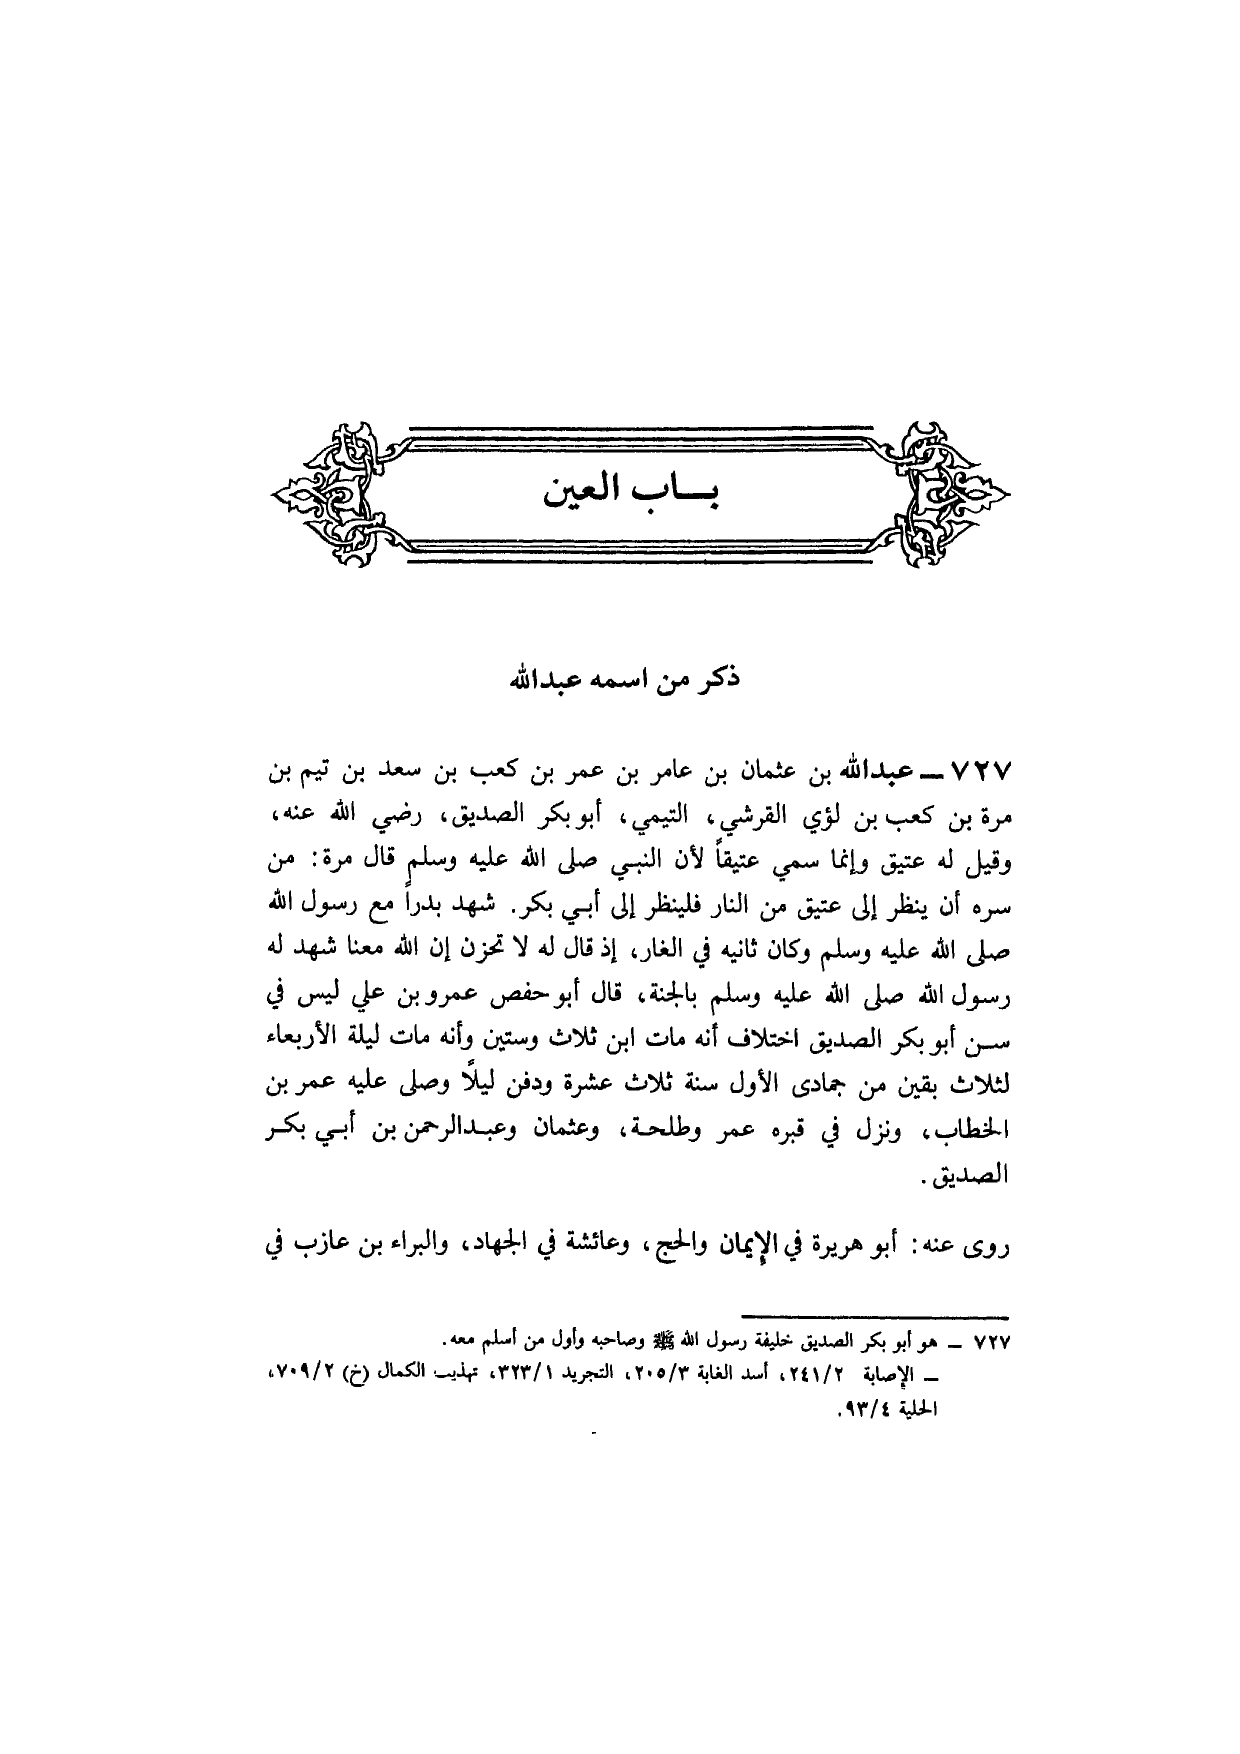 بـــاب العين
ذكر من اسمه عبدالله
٧٢٧ ــ عبدالله بن عثمان بن عامر بن عمر بن كعب بن سعد بن تيم بن
مرة بن كعب بن لؤي القرشي، التيمي، أبو بكر الصديق، رضي الله عنه،
وقيل له عتيق وإنما سمي عتيقاً لأن النبي صلى الله عليه وسلم قال مرة: من
سره أن ينظر إلى عتيق من النار فلينظر إلى أبي بكر. شهد بدراً مع رسول الله
صلى الله عليه وسلم وكان ثانيه في الغار، إذ قال له لا تحزن إن الله معنا شهد له
رسول الله صلى الله عليه وسلم بالجنة، قال أبو حفص عمرو بن علي ليس في
سن أبو بكر الصديق اختلاف أنه مات ابن ثلاث وستين وأنه مات ليلة الأربعاء
لثلاث بقين من جمادى الأول سنة ثلاث عشرة ودفن ليلًا وصلى عليه عمر بن
الخطاب، ونزل في قبره عمر وطلحة، وعثمان وعبدالرحمن بن أبي بكر
الصديق.
روى عنه: أبو هريرة في الإيمان والحج، وعائشة في الجهاد، والبراء بن عازب في
٧٢٧ ــ هو أبو بكر الصديق خليفة رسول الله ﷺ وصاحبه وأول من أسلم معه.
ــ الإصابة ٢٤١/٢، أسد الغابة ٢٠٥/٣، التجريد ٣٢٣/١، تهذيب الكمال (خ) ٧٠٩/٢،
الحلية ٩٣/٤.